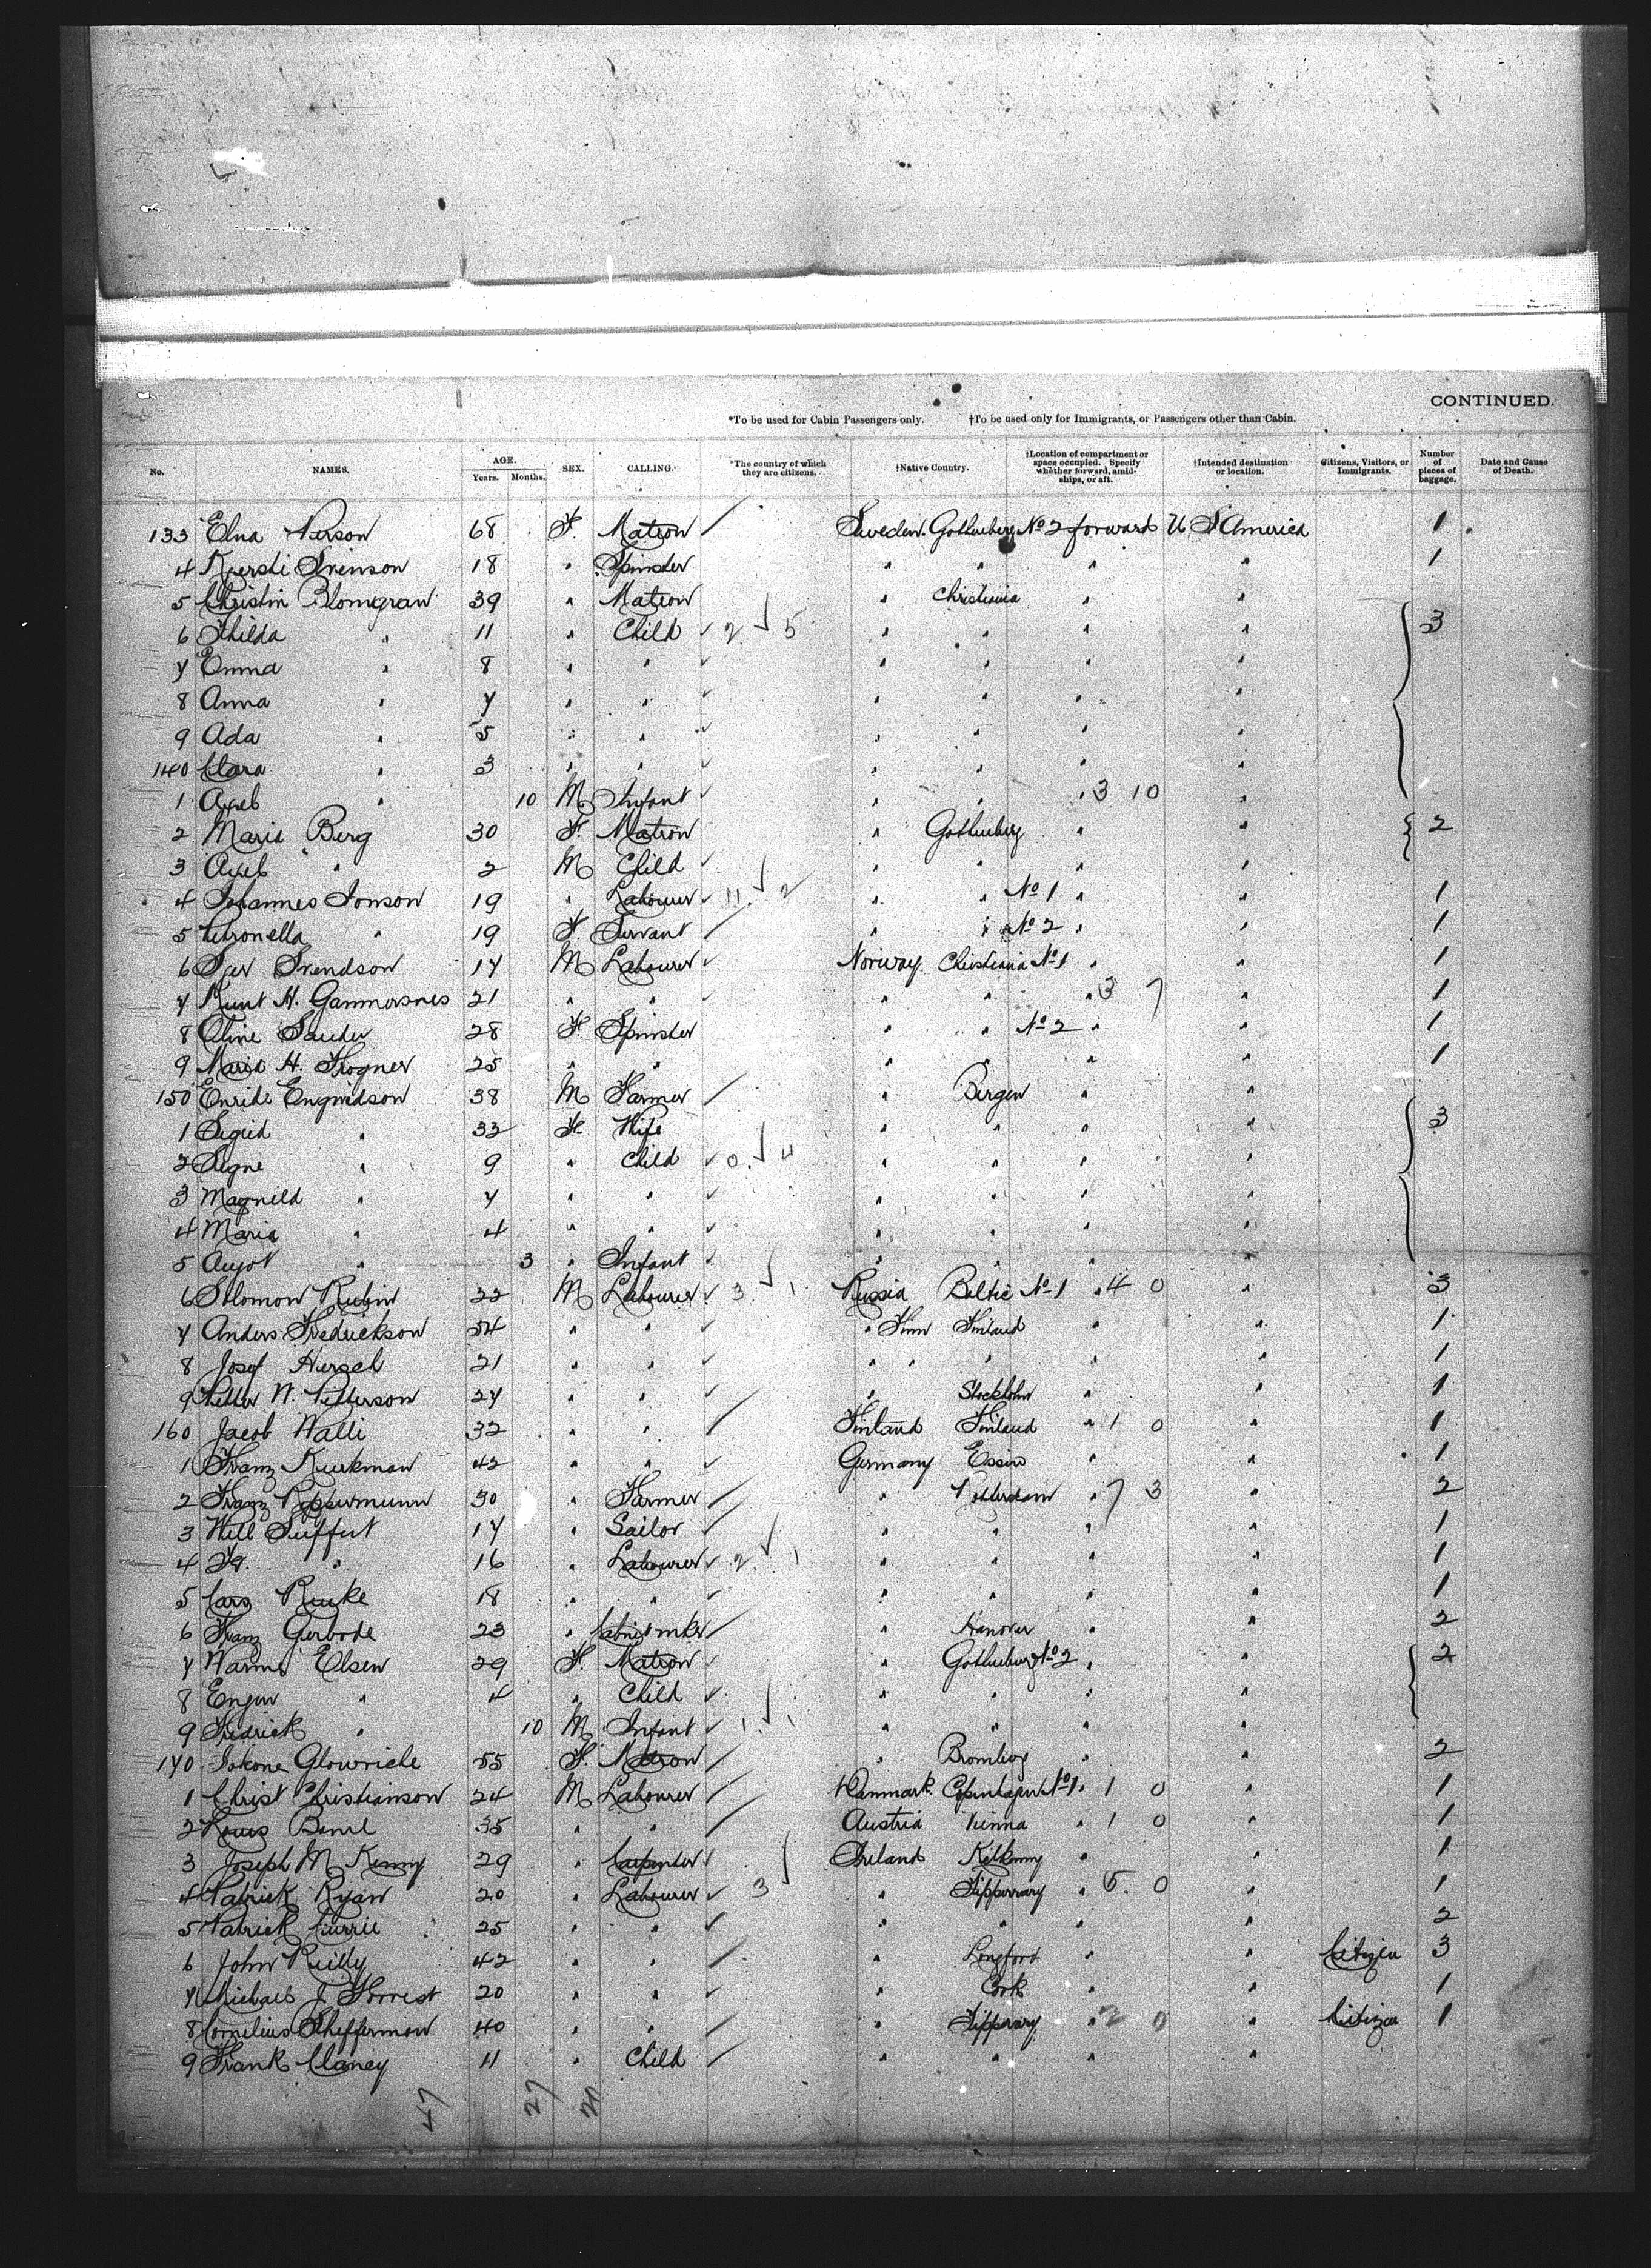 CONTINUED.
*To be used for Cabin Passengers only. †To be used only for Immigrants, or Passengers other than Cabin.
No. NAMES. AGE. Years. Months. SEX. CALLING. *The country of which they are citizens. †Native Country. †Location of compartment or space occupied. Specify whether forward, amidships, or aft. †Intended destination or location. Citizens, Visitors, or Immigrants. Number of pieces of baggage. Date and Cause of Death.
133 Elna Person 68 F. Matron Sweden. Gothenberg No 2 forward U S America 1
4 Kjersti Svenson 18 " Spinster " " " " 1
5 Christin Blomgran 39 " Matron " Christiania " "
6 Thilda " 11 " Child 2 5 " " " " 3
7 Emma " 8 " " " " " "
8 Anna " 7 " " " " " "
9 Ada " 5 " " " " " "
140 Clara " 3 " " " " " "
1 Axel " 10 M Infant " " " 3 10 "
2 Maria Berg 30 F. Matron " Gothenberg " " 2
3 Axel " 2 M Child " " " "
4 Johannes Jonson 19 " Labourer 11 2 " " No 1 " " 1
5 Petronella " 19 F. Servant " " No 2 " " 1
6 Svendson 17 M Labourer Norway. Christiania No 1 " " 1
7 Knut H. Gammersnes 21 " " " " " 3 7 " 1
8 Aline 28 F. Spinster " " No 2 " " 1
9 Maria H. Frogner 25 " " " " " " 1
150 Engvidson 38 M Farmer " Bergen " "
1 Sigrid " 33 F. Wife " " " " 3
2 Signe " 9 " Child 0 4 " " " "
3 Magnild " 7 " " " " " "
4 Maria " 4 " " " " " "
5 " 3 " Infant " " " "
6 Solomon Rubin 22 M Labourer 3 1 Russia Baltic No 1 " 4 0 " 3
7 Anders Fredrickson 54 " " " Finn Finland " " 1
8 Josef Hersch 21 " " " " " " 1
9 Petter N. Petterson 27 " " " Stockholm " " 1
160 Jacob Walli 32 " " Finland Finland " 1 0 " 1
1 Franz 42 " " Germany Essen " 1
2 Franz 30 " Farmer " Rotterdam " 7 3 " 2
3 Will Seiffert 17 " Sailor " " " " 1
4 Fr. " 16 " Labourer 2 1 " " " " 1
5 Carz 18 " " " " " " 1
6 Franz Gerbode 23 " Cabinet mker " Hanover " " 2
7 Elsen 29 F. Matron " Gothenburg No 2 " " 2
8 " 4 " Child " " " "
9 Fredrick " 10 M Infant 1 1 " " " "
170 55 F. Matron " Bromberg " " 2
1 Christ Christianson 24 M Labourer Danmark. Copenhagen No 1 " 1 0 " 1
2 Louis 35 " " Austria Vienna " 1 0 " 1
3 Joseph M. Kenny 29 " Carpenter Ireland Kilkenny " " 1
4 Patrick Ryan 20 " Labourer 3 " Tipperrary " 5 0 " 1
5 Patrick Currie 25 " " " " " " 2
6 John Reilly 42 " " " Longford " " Citizen 3
7 Michael J Forrest 20 " " " Cork " " 1
8 Cornelius Sheffernan 40 " " " Tipperary " 2 0 " Citizen 1
9 Frank Claney 11 " Child " " " "
47 27 20